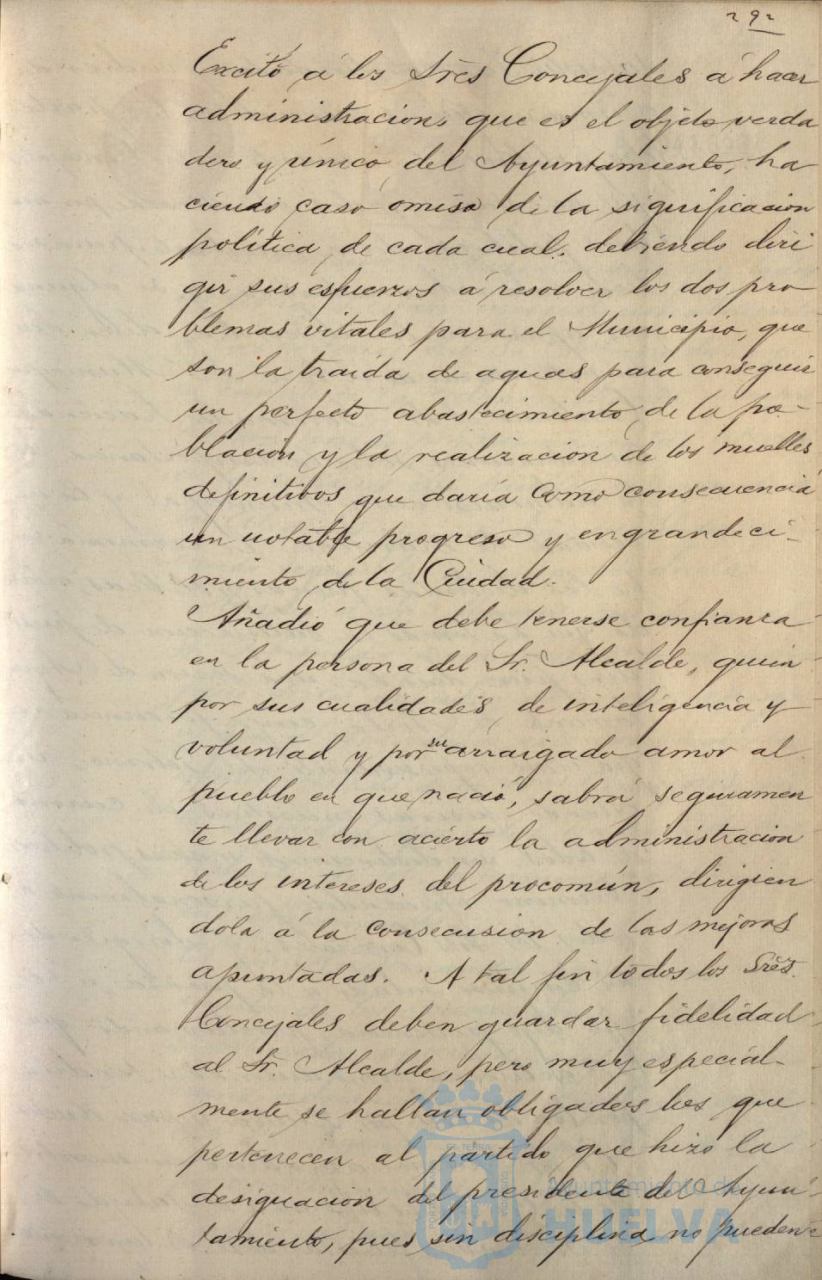 292
Excitó á los Sres Concejales á hacer
administracion, que es el objeto verda
dero y único del Ayuntamiento, ha-
ciendo caso omiso de la significacion
política de cada cual, debiendo diri
gir sus esfuerzos á resolver los dos pro-
blemas vitales para el Municipio, que
son la traida de aguas para conseguir
un perfecto abastecimiento de la po-
blacion y la realizacion de los muelles
definitivos que daría como consecuencia
un notable progreso y engrandeci-
miento de la Ciudad.
Añadió que debe tenerse confianza
en la persona del Sr. Alcalde, quien
por sus cualidades de inteligencia y
voluntad y por su arraigado amor al
pueblo en que nació, sabrá seguramen
te llevar con acierto la administracion
de los intereses del procomún, dirigien
dola á la consecusion de las mejoras
apuntadas. A tal fin todos los Sres.
Concejales deben guardar fidelidad
al Sr. Alcalde, pero muy especial-
mente se hallan obligados los que
pertenecen al partido que hizo la
designacion del presidente del Ayun-
tamiento, pues sin disciplina no pueden
Ayuntamiento de
HUELVA